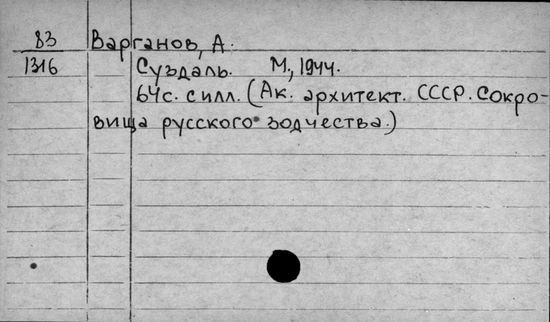 83 Варганов, А.
1316 Суздаль. М., 1944.
64с. с илл. (Ак. архитект. СССР. Сокро-
вища русского зодчества.)